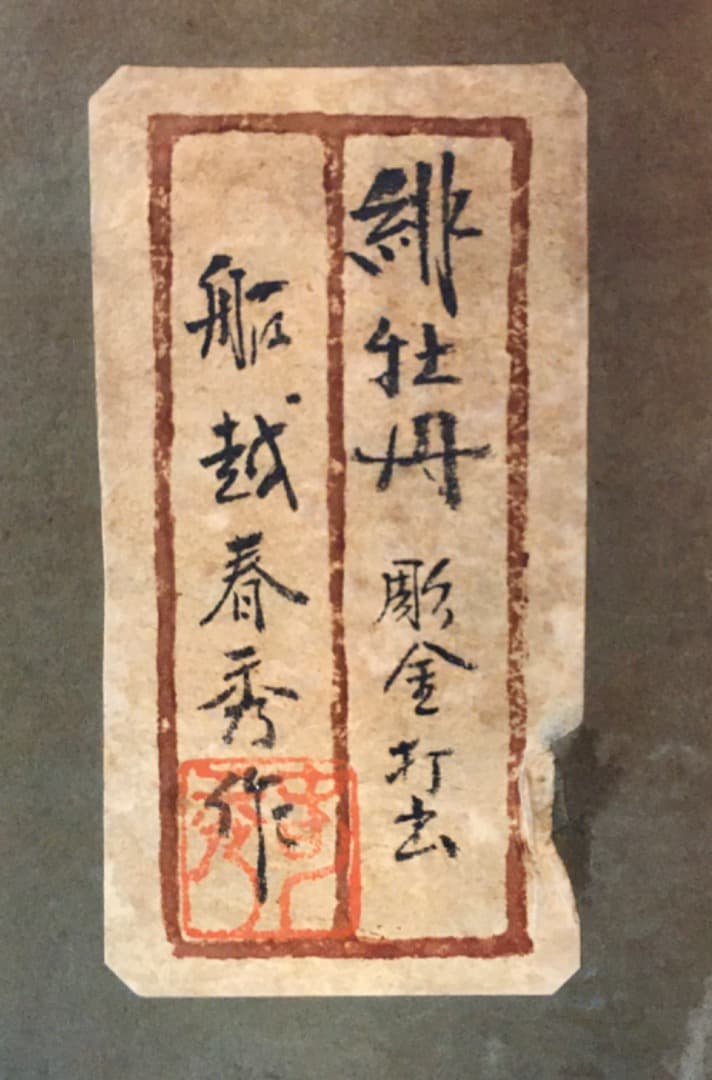 緋牡丹 彫金打出
船越春秀作